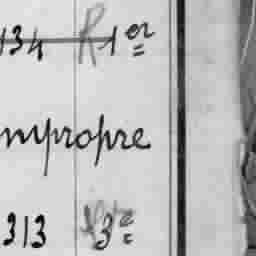 134 R 1er
mpropre
313 3e